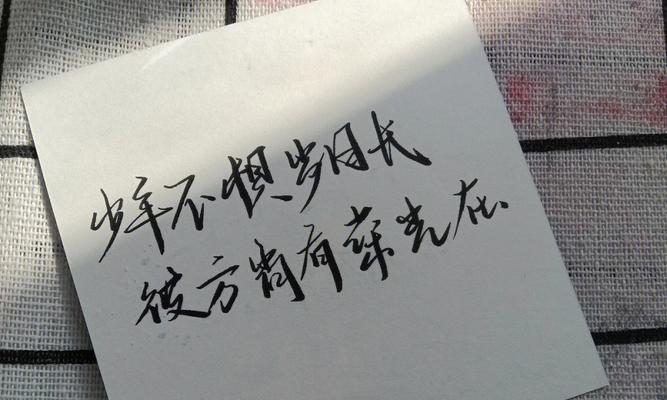 少年不惧岁月长
彼方尚有荣光在.